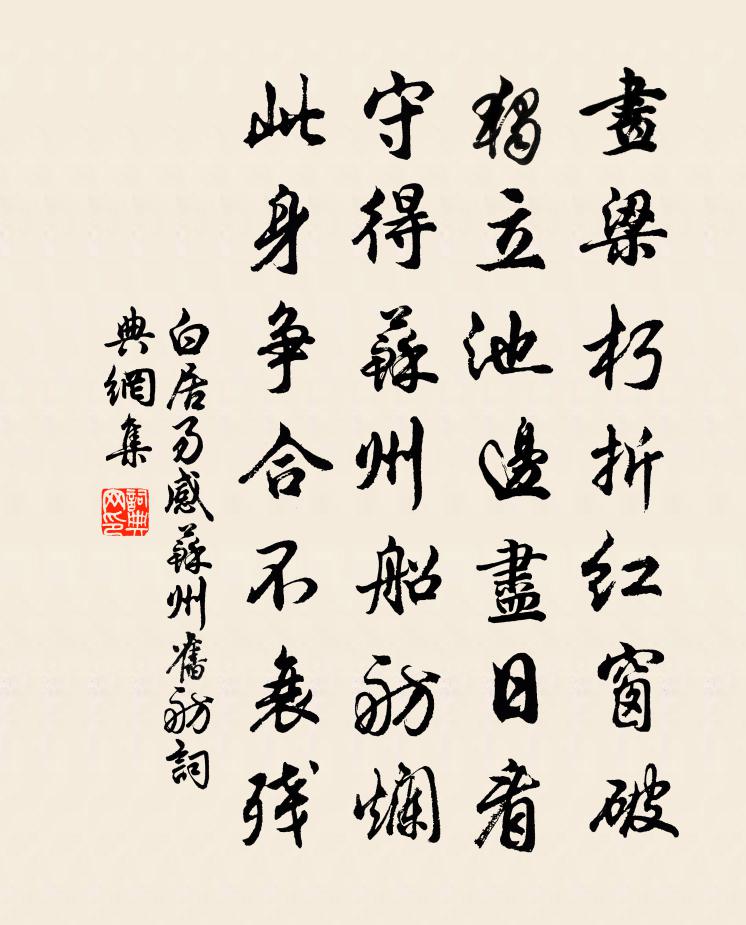 畫梁朽折紅窗破
獨立池邊盡日看
守得蘇州船舫爛
此身争合不衰残
白居易感蘇州舊舫詞
典網集
詞典网印